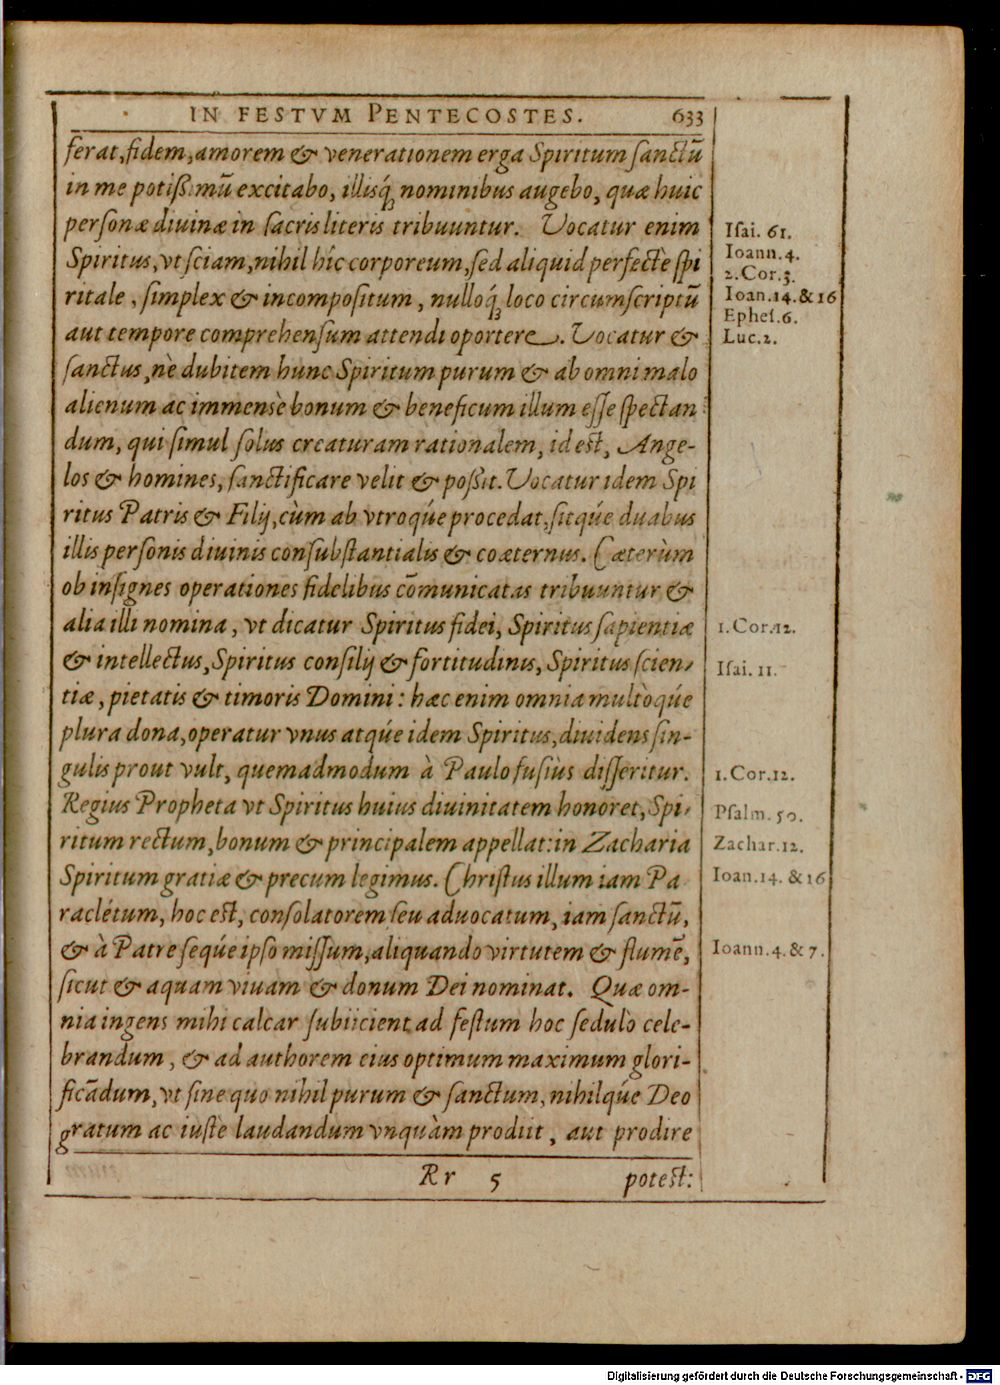 IN FESTVM PENTECOSTES. 633
ferat, fidem, amorem & venerationem erga Spiritum sanctū
in me potißimū excitabo, illisq́ȝ nominibus augebo, quæ huic
personæ diuinæ in sacris literis tribuuntur. Vocatur enim
Spiritus, vt sciam, nihil hîc corporeum, sed aliquid perfectè spi
ritale, simplex & incompositum, nulloq́ȝ loco circumscriptū
aut tempore comprehensum attendi oportere. Vocatur &
sanctus, nè dubitem hunc Spiritum purum & ab omni malo
alienum ac immensè bonum & beneficum illum esse spectan
dum, qui simul solus creaturam rationalem, id est, Ange-
los & homines, sanctificare velit & poßit. Vocatur idem Spi
ritus Patris & Filij, cùm ab vtroq́ue procedat, sitq́ue duabus
illis personis diuinis consubstantialis & coæternus. Cæterùm
ob insignes operationes fidelibus cōmunicatas tribuuntur &
alia illi nomina, vt dicatur Spiritus fidei, Spiritus sapientiæ
& intellectus, Spiritus consilij & fortitudinis, Spiritus scien-
tiæ, pietatis & timoris Domini: hæc enim omnia multòq́ue
plura dona, operatur vnus atq́ue idem Spiritus, diuidens sin-
gulis prout vult, quemadmodum à Paulo fusiùs disseritur.
Regius Propheta vt Spiritus huius diuinitatem honoret, Spi-
ritum rectum, bonum & principalem appellat: in Zacharia
Spiritum gratiæ & precum legimus. Christus illum iam Pa
raclétum, hoc est, consolatorem seu aduocatum, iam sanctū,
& à Patre seq́ue ipso missum, aliquando virtutem & flumē,
sicut & aquam viuam & donum Dei nominat. Quæ om-
nia ingens mihi calcar subiicient ad festum hoc sedulò cele-
brandum, & ad authorem eius optimum maximum glori-
ficādum, vt sine quo nihil purum & sanctum, nihilq́ue Deo
gratum ac iustè laudandum vnquàm prodiit, aut prodire
Rr 5 potest:
Isai. 61.
Ioann. 4.
2. Cor. 3.
Ioan. 14. & 16
Ephes. 6.
Luc. 2.
1. Cor. 12.
Isai. 11.
1. Cor. 12.
Psalm. 50.
Zachar. 12.
Ioan. 14. & 16
Ioann. 4. & 7.
Digitalisierung gefördert durch die Deutsche Forschungsgemeinschaft - DFG